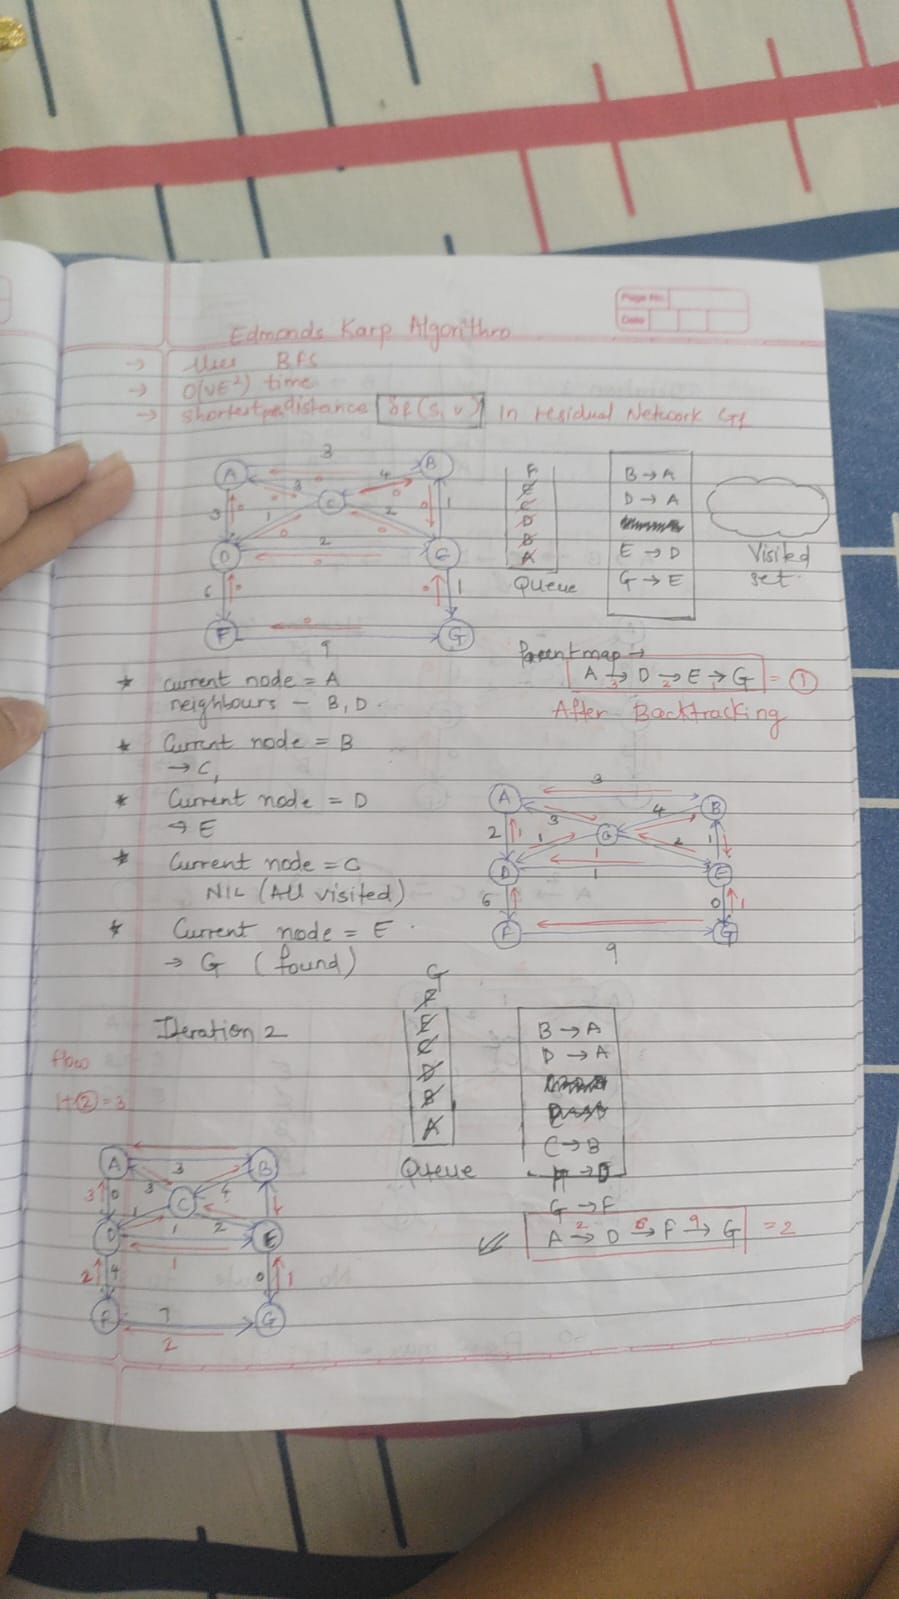 Page No.
Date
Edmonds Karp Algorithm
→ Uses BFS
→ O(VE²) time
→ shortest distance δf(s,v) in residual Network Gf
3
A
B
3
4
C
3
1
2
D
2
E
1
6
1
F
9
G
F
E
C
D
B
A
Queue
B → A
D → A
E → D
G → E
Visited
set.
Parent map →
A → D → E → G = 1
3 2 1
After Backtracking
* Current node = A
neighbours - B, D.
* Current node = B
→ C,
* Current node = D
→ E
* Current node = C
NIL (All visited)
* Current node = E
→ G (found)
3
A
B
3
4
2 1
1
1
2
1
D
1
E
6
0 1
F
9
G
Iteration 2
flow
1+2=3
G
F
E
C
D
B
A
Queue
B → A
D → A
C → B
→ D
G → F
A → D → F → G = 2
2 6 9
A
3
B
3 0
3
C
4
1
1
2
D
1
E
2 4
0 1
F
7
G
2